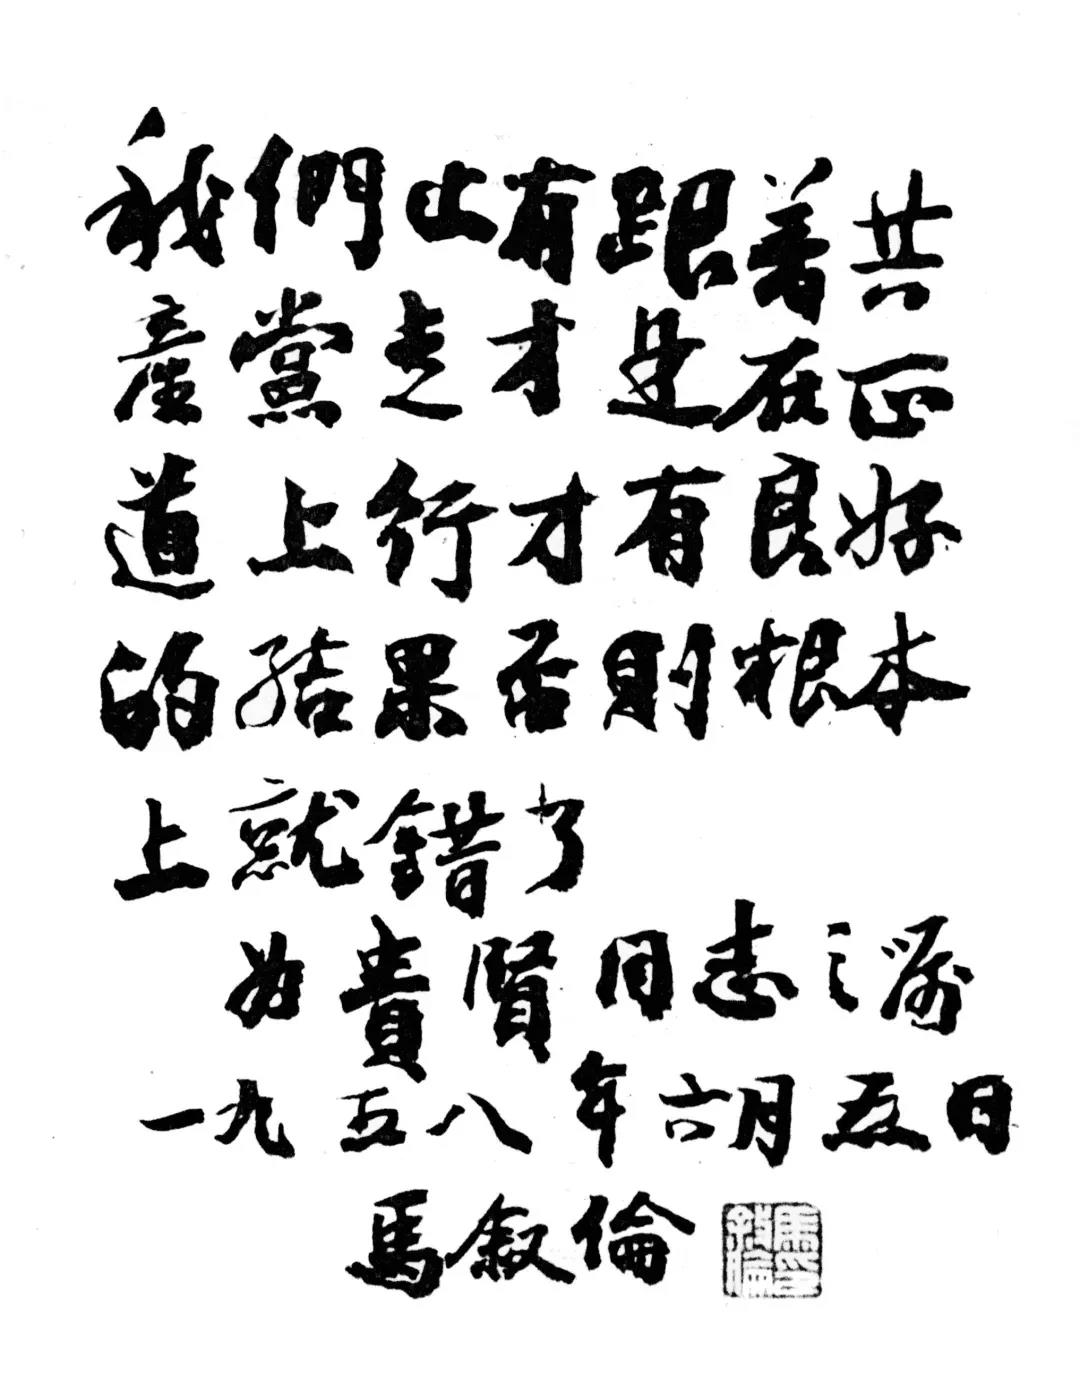 我們止有跟着共
產黨走才是在正
道上行才有良好
的結果否則根本
上就錯了
為貴賢同志之嘱
一九五八年六月五日
馬敘倫
馬敘倫印